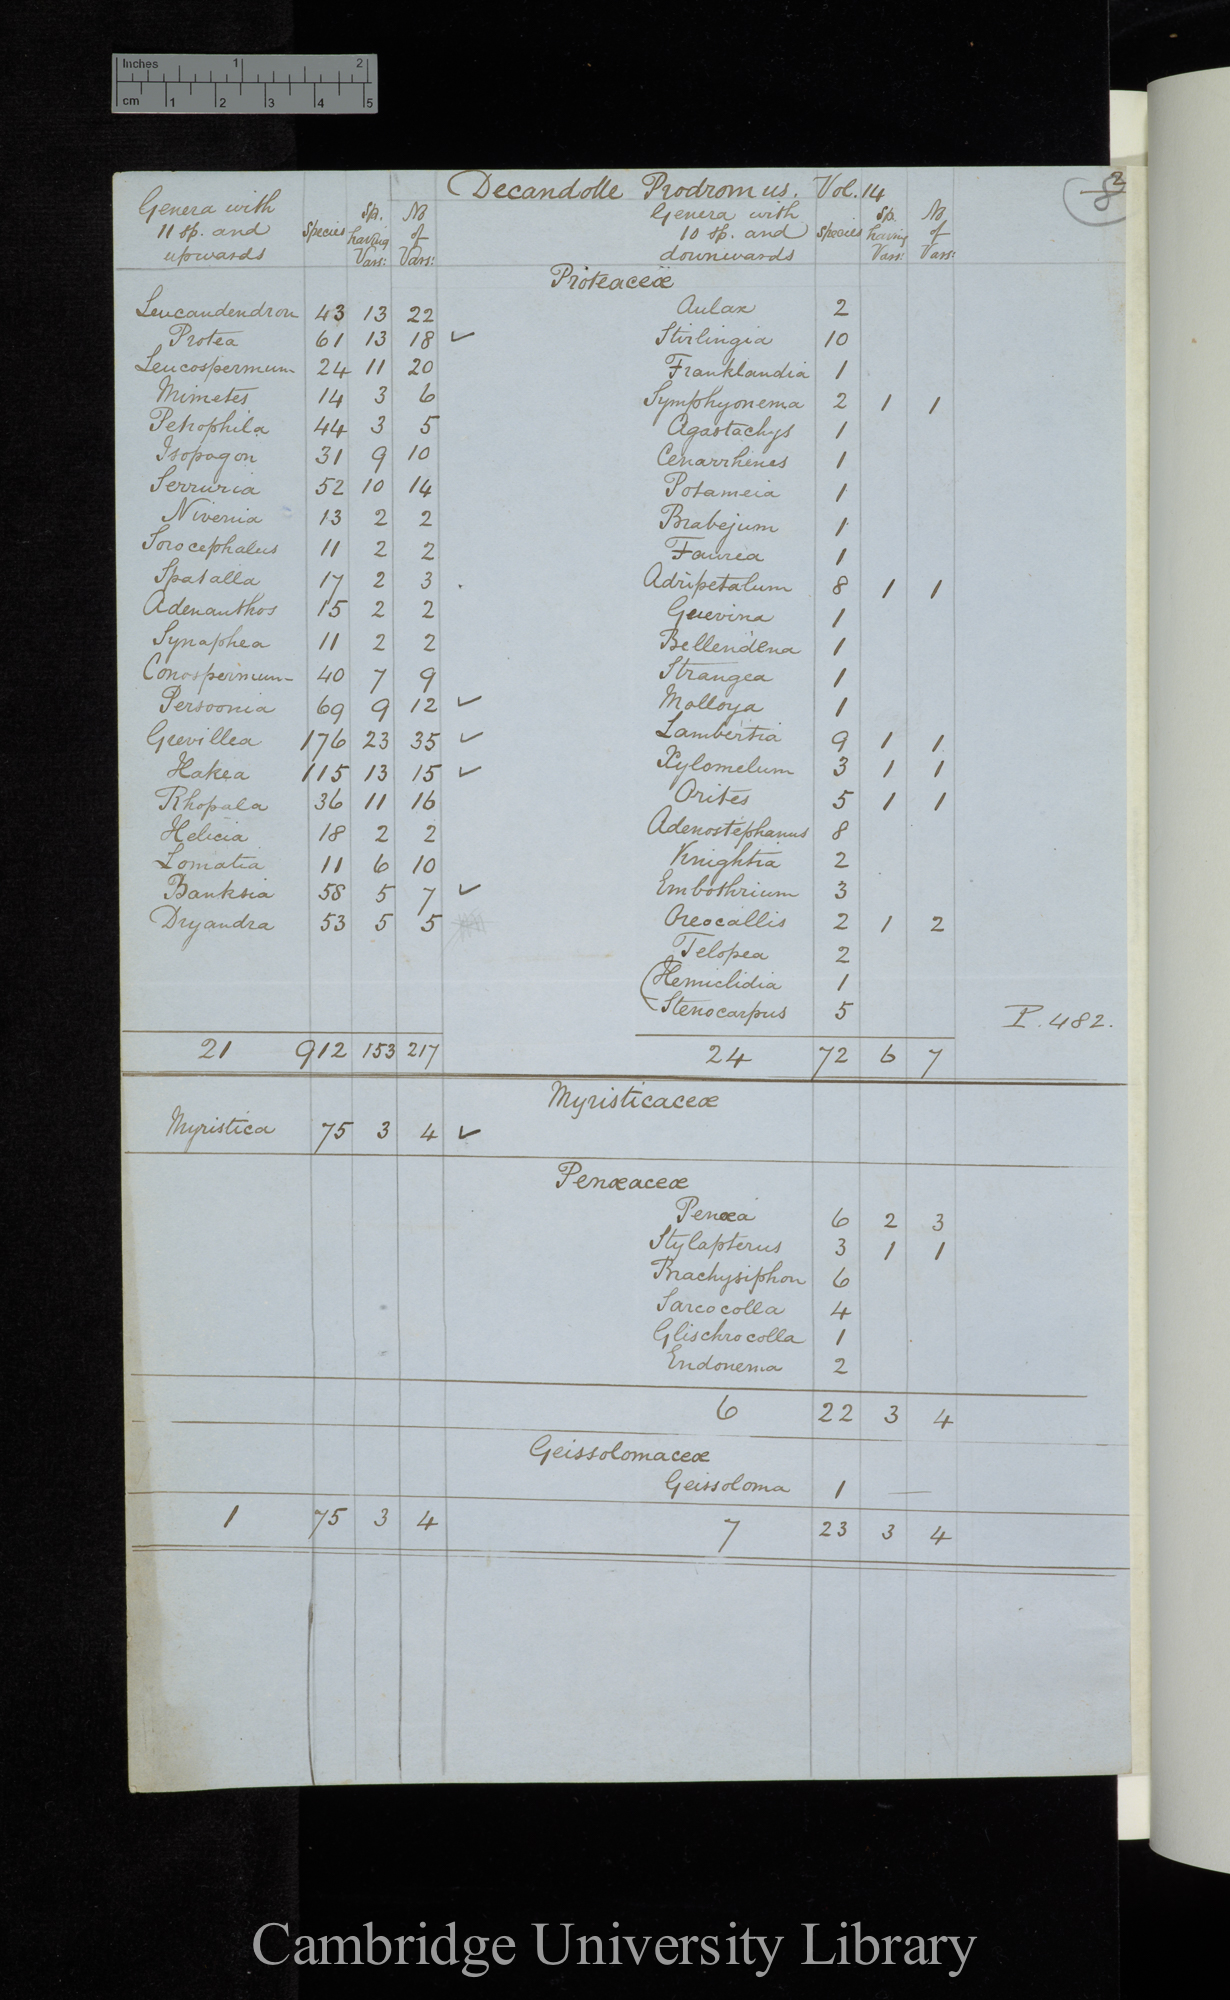 Inches 1 2
cm 1 2 3 4 5
Decandolle Prodromus. Vol. 14
2
8
Genera with 11 sp. and upwards | Species | Sp. having Vars: | No of Vars: | Genera with 10 sp. and downwards | Species | Sp. having Vars: | No of Vars:
Proteaceæ
Leucaudendron 43 13 22 Aulax 2
Protea 61 13 18 ✓ Stirlingia 10
Leucospermum 24 11 20 Franklandia 1
Mimetes 14 3 6 Symphyonema 2 1 1
Petrophila 44 3 5 Agastachys 1
Isopogon 31 9 10 Cenarrhenes 1
Serruria 52 10 14 Potameia 1
Nivenia 13 2 2 Brabejum 1
Sorocephalus 11 2 2 Faurea 1
Spatalla 17 2 3 Adripetalum 8 1 1
Adenanthos 15 2 2 Guevina 1
Synaphea 11 2 2 Bellendena 1
Conospermum 40 7 9 Strangea 1
Persoonia 69 9 12 ✓ Molloya 1
Grevillea 176 23 35 ✓ Lambertia 9 1 1
Hakea 115 13 15 ✓ Xylomelum 3 1 1
Rhopala 36 11 16 Orites 5 1 1
Helicia 18 2 2 Adenostephanus 8
Lomatia 11 6 10 Knightia 2
Banksia 58 5 7 ✓ Embothrium 3
Dryandra 53 5 5 Oreocallis 2 1 2
Telopea 2
Hemiclidia 1
Stenocarpus 5
P. 482.
21 912 153 217 24 72 6 7
Myristicaceæ
Myristica 75 3 4 ✓
Penæaceæ
Penæa 6 2 3
Stylapterus 3 1 1
Brachysiphon 6
Sarcocolla 4
Glischrocolla 1
Endonema 2
6 22 3 4
Geissolomaceæ
Geissoloma 1 —
1 75 3 4 7 23 3 4
Cambridge University Library